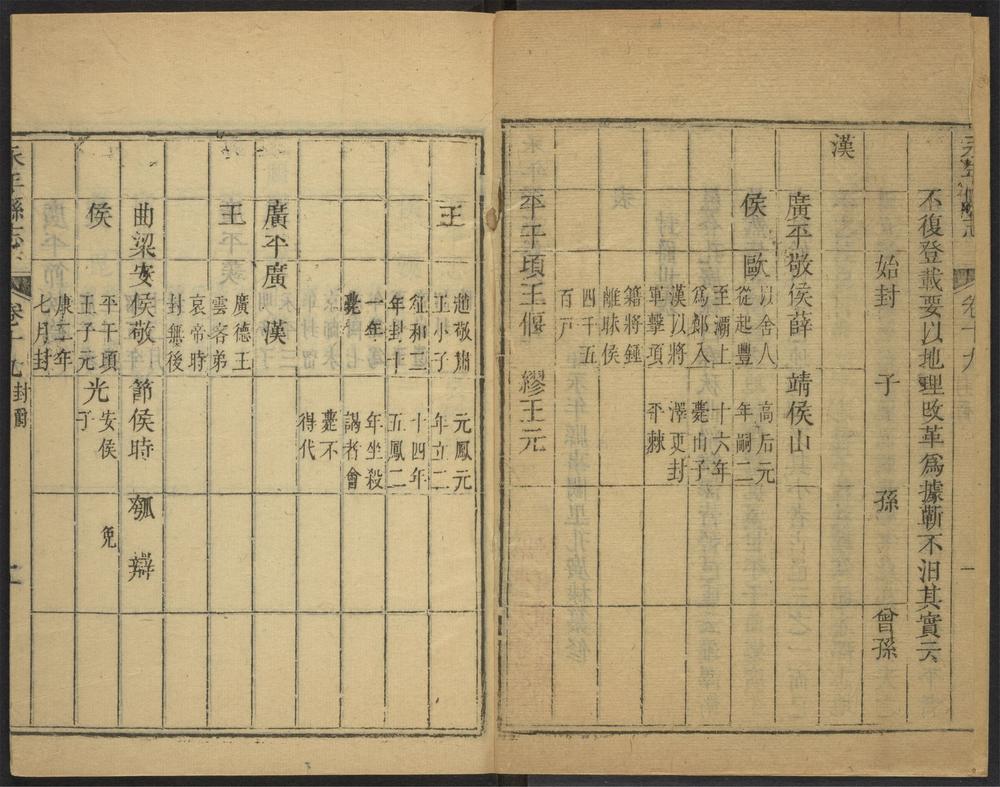 卷十九
一
不復登載要以地理改革爲據蘄不汨其實云
始封 子 孫 曾孫
漢
廣平敬侯薛 靖侯山
侯 歐 以舍人 高后元
從起豐 年嗣二
至灞上 十六年
爲郎入 薨山子
漢以將 澤更封
軍擊項 平棘
籍將鍾
離眛侯
四千五
百戸
平干頃王偃 繆王元
王 趙敬肅 元鳳元
王小子 年立二
征和二 十四年
年封十 五鳳二
一年 年坐殺
薨 謁者會
薨不
得代
廣平廣 漢
王 廣德王
雲客弟
哀帝時
封無後
曲梁安侯敬 節侯時 瓠辯
侯 平干頃 光 安侯 免
王子元 子
康三年
七月封
永年縣志 卷十九 封爵 二